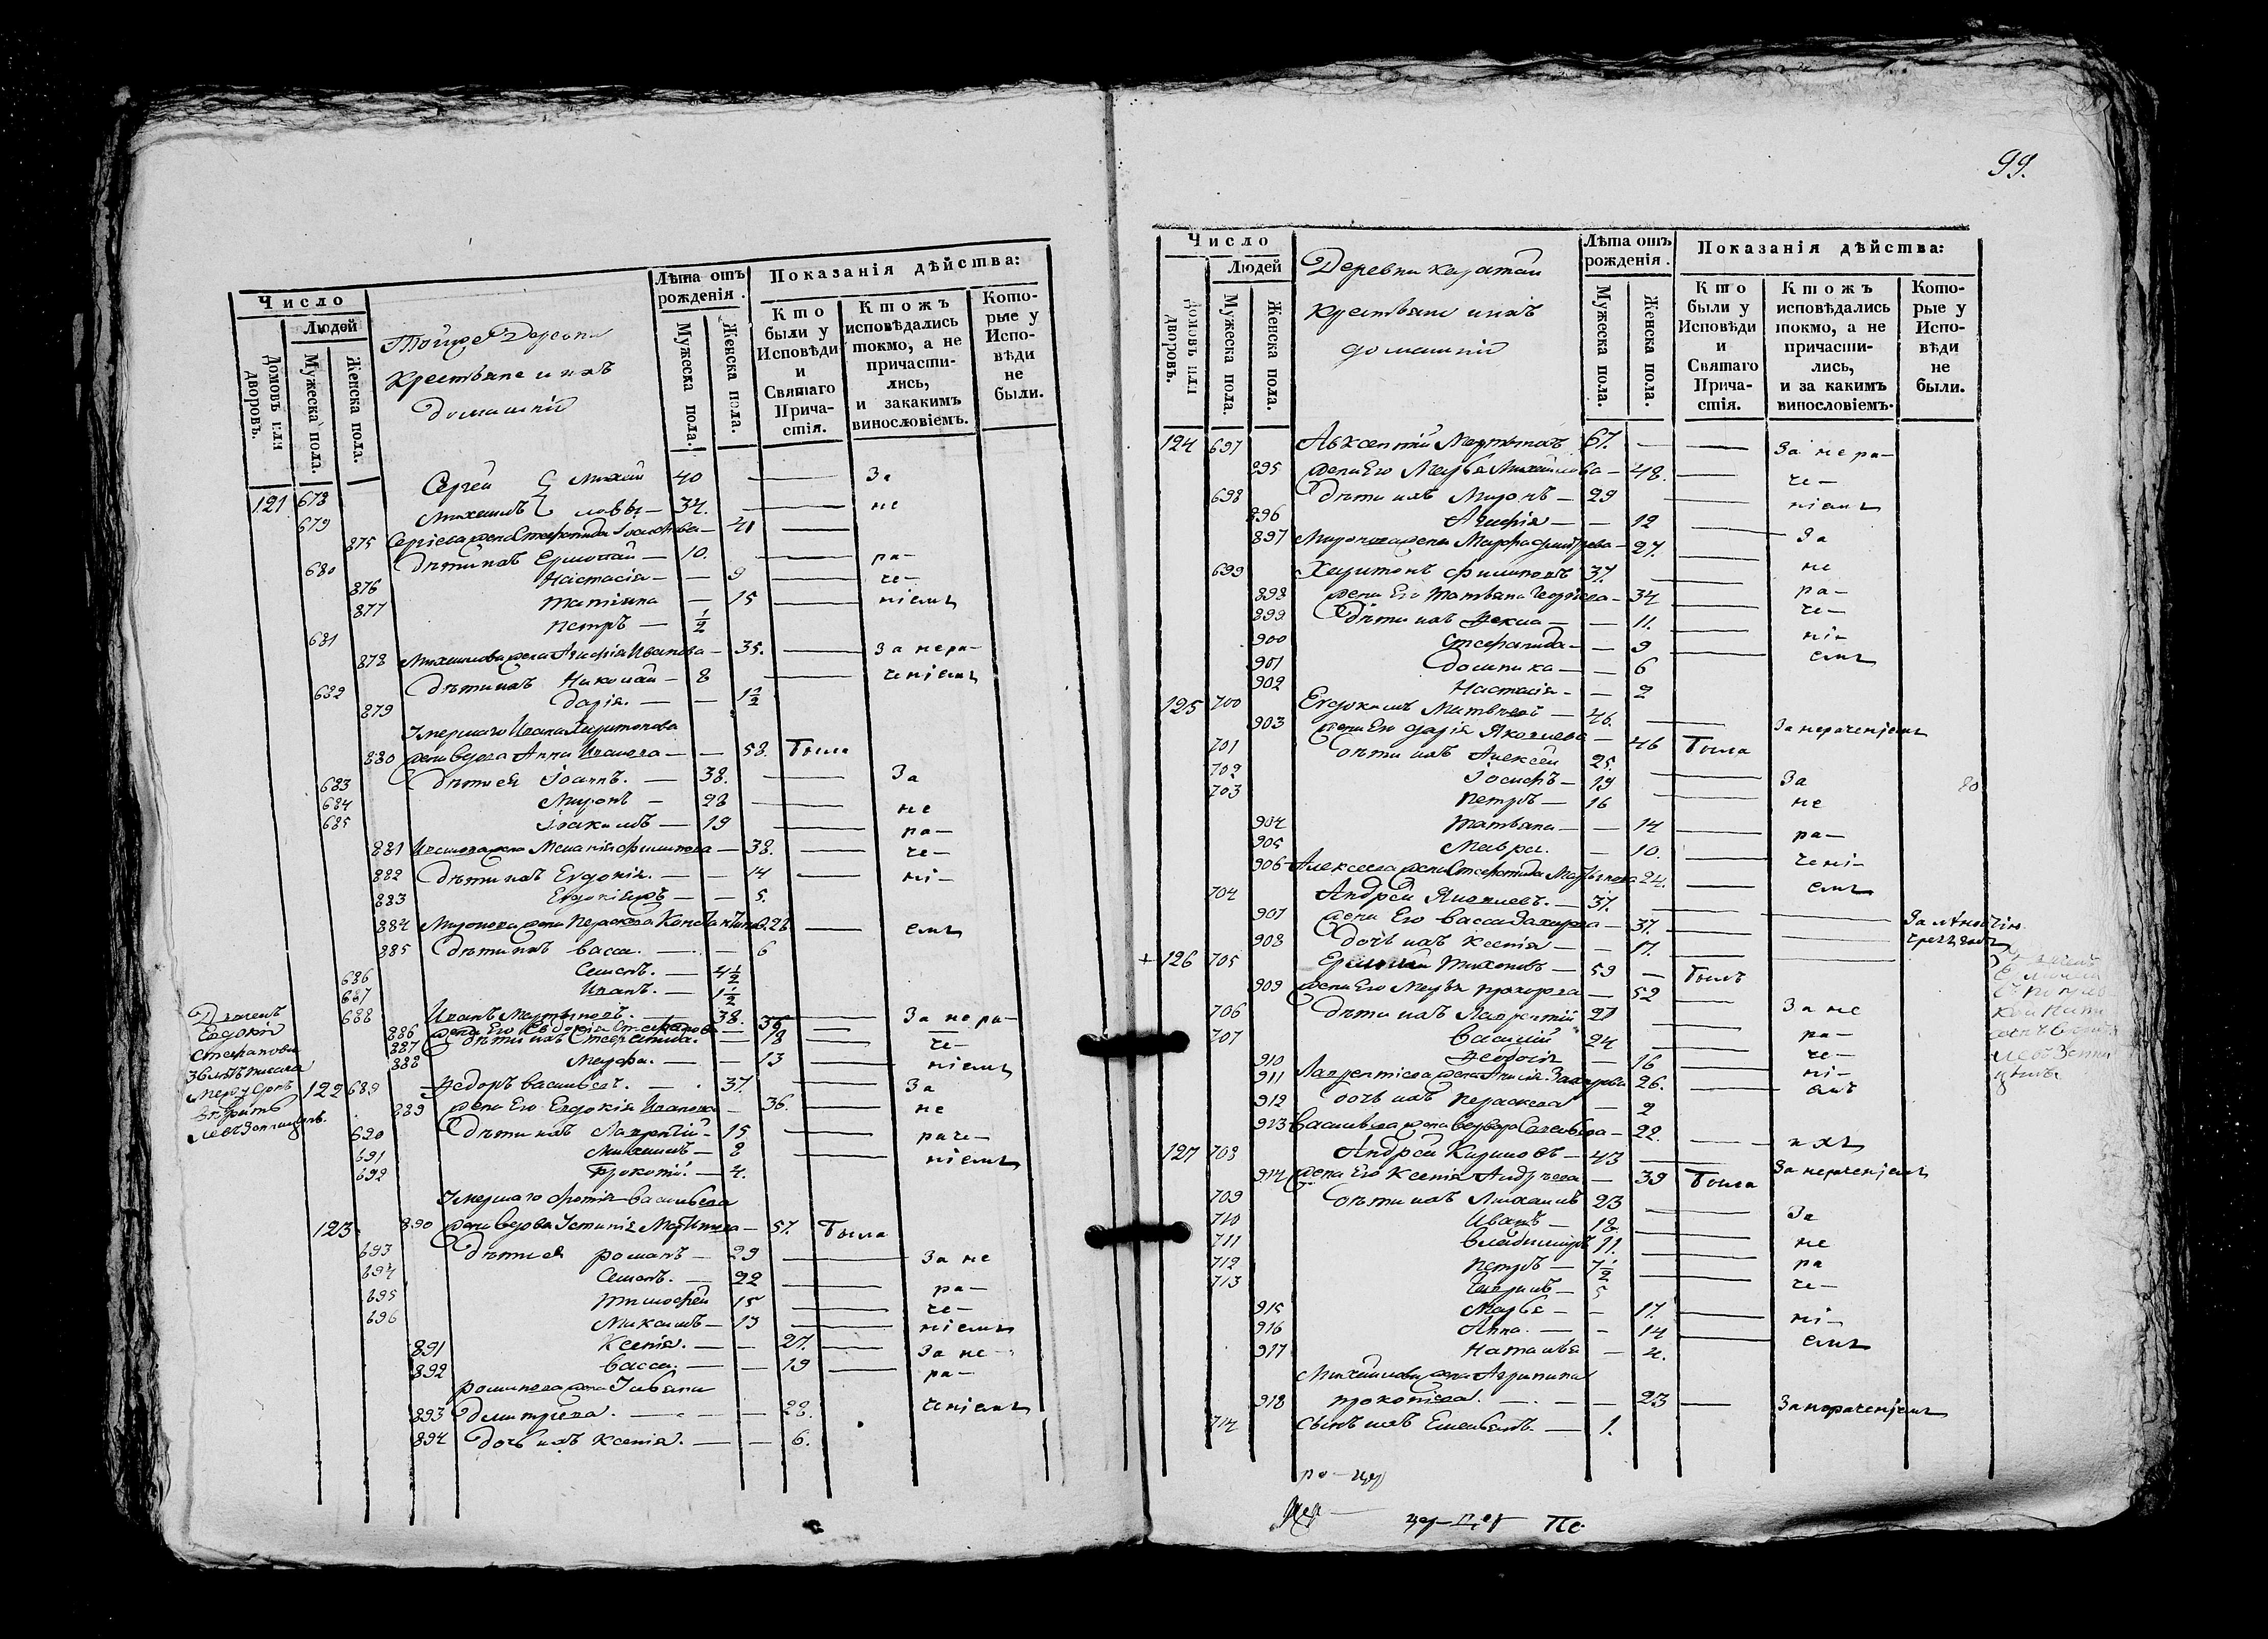 99.
Число
Людей
Домовъ или дворовъ.
Мужеска пола.
Женска пола.
Той же Деревни
крестьяне и ихъ
домашніе
Лѣта отъ рожденія.
Мужеска пола.
Женска пола.
Показанія дѣйства:
Кто были у Исповѣди и Святаго Причастія.
Ктожъ исповѣдались токмо, а не причастились, и закакимъ винословіемъ.
Которые у Исповѣди не были.
121 678 Сергей Михай 40 За
679 Михаилъ ловы 34. не
875 Сергіева жена Стефанида 41
680 Дѣти ихъ Ермолай 10. ра-
876 Настасія 9 че-
877 Татіяна 15 ніемъ
681 Петръ ½
878 Михайлова жена Агафія Иванова 35. За нера-
682 Дѣти ихъ Николай 8 ченіемъ
879 Дарія. 1½
Умершаго Ивана Харитонова
880 жена вдова Анна Иванова 58. Была
683 Дѣти ея Іоаннъ. 38. За
684 Миронъ 28 не
685 Іоакимъ 19 ра-
881 Иванова жена Меланія Филипова 38. че-
882 Дѣти ихъ Евдокія. 14 ні-
883 5.
884 Миронова жена Параскева 26 емъ
885 Дѣти ихъ Васса. 6
686 Семенъ. 4½
687 Иванъ. 1½
688 Иванъ Мартыновъ. 38. За нера-
886 жена Его Евдокія Стефанова 36
887 дѣти ихъ Стефанида. 18 че-
888 Марфа. 13 ніемъ
Евдокія
Стефанова
122 689 Федоръ Васильевъ. 37. За
889 жена Его Евдокія Иванова 36. не
690 Дѣти ихъ Лаврентій 15 раче-
691 Михаилъ 8 ніемъ
692 Прокопій. 4.
Умершаго Фотія Васильева
123. 890 жена вдова Устинія 57. Была
693 Дѣти ея Романъ 29 За не
694 Семенъ. 22 ра-
695 Тимофей 15 че-
696 Максимъ 13 ніемъ
891 Ксенія. 27. За не-
892 Васса. 19 ра-
Романова жена Ульяна
893 Дмитрева. 28. ченіемъ
894 дочь ихъ Ксенія. 6.
Число
Людей
Домовъ или дворовъ.
Мужеска пола.
Женска пола.
Деревни
крестьяне и ихъ
домашніе
Лѣта отъ рожденія.
Мужеска пола.
Женска пола.
Показанія дѣйства:
Кто были у Исповѣди и Святаго Причастія.
Ктожъ исповѣдались токмо, а не причастились, и за какимъ винословіемъ.
Которые у Исповѣди не были.
124 697 Авксентій Мартыновъ 67. За нера-
895 жена Его Марья Михайлова 48. че-
698 Дѣти ихъ Миронъ 29 ніемъ
896 Агафія 12
897 Миронова жена Марфа 27. За
699 Харитонъ Филиповъ 37. не
898 жена Его Татьяна 34 ра-
899 Дѣти ихъ Фекла 11. че-
900 Стефанида 9 ні-
901 Домника 6 емъ
902 Настасія 2
125 700 Евдокимъ Матвѣевъ 46.
903 жена Его Дарія Яковлева 46 Была За нераченіемъ
701 дѣти ихъ Алексей 25.
702 Іосифъ 19 За
703 Петръ 16 не
904 Татьяна 14 ра-
905 Мавра. 10. чені-
906 Алексеева жена Стефанида Мартынова 24. емъ
704 Андрей Яковлевъ. 37.
907 жена Его Васса Захарова 37.
908 дочь ихъ Ксенія 17.
+ 126 705 Тихоновъ 59 Былъ
909 жена Его Марья Прохорова 52
706 дѣти ихъ Лаврентій 27 За не
707 Василій 24 ра-
910 Феодосія 16 че-
911 Лаврентіева жена 26. ні-
912 дочь ихъ Параскева 2 емъ
913 Васильева жена 22.
127 708 Андрей 43
914 жена Его Ксенія Андреева 39 Была За нераченіемъ
709 дѣти ихъ Михаилъ 23
710 Иванъ 18. За
711 Владимиръ 11. не
712 Петръ 7½ ра
713 5 че-
915 Марья 17. ні-
916 Анна. 14 емъ
917 Наталья 4.
Михайлова жена Агрипина
918 Прокопіева. 23 За нераченіемъ
714 Сынъ ихъ Емельянъ. 1.